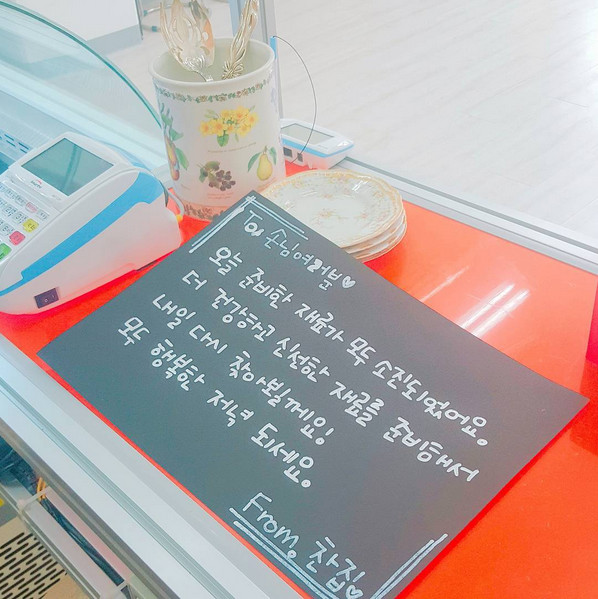 To. 손님여러분♥
오늘 준비한 재료가 모두 소진되었어요.
더 건강하고 신선한 재료를 준비해서
내일 다시 찾아뵐께요!
모두 행복한 저녁 되세요.
From. 찬집♥